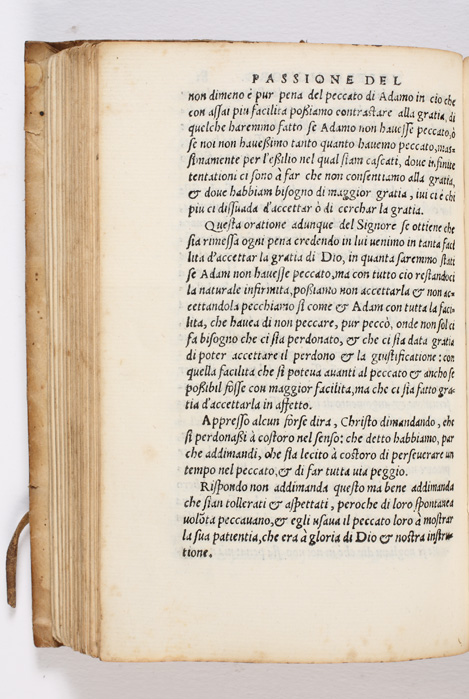 PASSIONE DEL
non dimeno è pur pena del peccato di Adamo in cio che
con assai piu facilita possiamo contrastare alla gratia, di
quelche haremmo fatto se Adamo non hauesse peccato, ò
se noi non hauessimo tanto quanto hauemo peccato, mas-
simamente per l'essilio nel qual siam cascati, doue infinite
tentationi ci sono à far che non consentiamo alla gratia,
& doue habbiam bisogno di maggior gratia, iui ci è chi
piu ci dissuada d'accettar ò di cerchar la gratia.
Questa oratione adunque del Signore se ottiene che
sia rimessa ogni pena credendo in lui uenimo in tanta faci
lità d'accettar la gratia di Dio, in quanta saremmo stati
se Adam non hauesse peccato, ma con tutto cio restandoci
la naturale infirmita, possiamo non accettarla & non ac-
cettandola pecchiamo si come & Adam con tutta la faci-
lita, che hauea di non peccare, pur peccò, onde non sol ci
fa bisogno che ci sia perdonato, & che ci sia data gratia
di poter accettare il perdono & la giustificatione: con
quella facilita che si poteua auanti al peccato & ancho se
possibil fosse con maggior facilita, ma che ci sia fatto gra-
tia d'accettarla in affetto.
Appresso alcun forse dira, Christo dimandando, che
si perdonassi à costoro nel senso: che detto habbiamo, par
che addimandi, che sia lecito à costoro di perseuerare un
tempo nel peccato, & di far tutta uia peggio.
Rispondo non addimanda questo ma bene addimanda
che sian tollerati & aspettati, peroche di loro spontanea
uolõta peccauano, & egli usaua il peccato loro à mostrar
la sua patientia, che era à gloria di Dio & nostra instru-
tione.